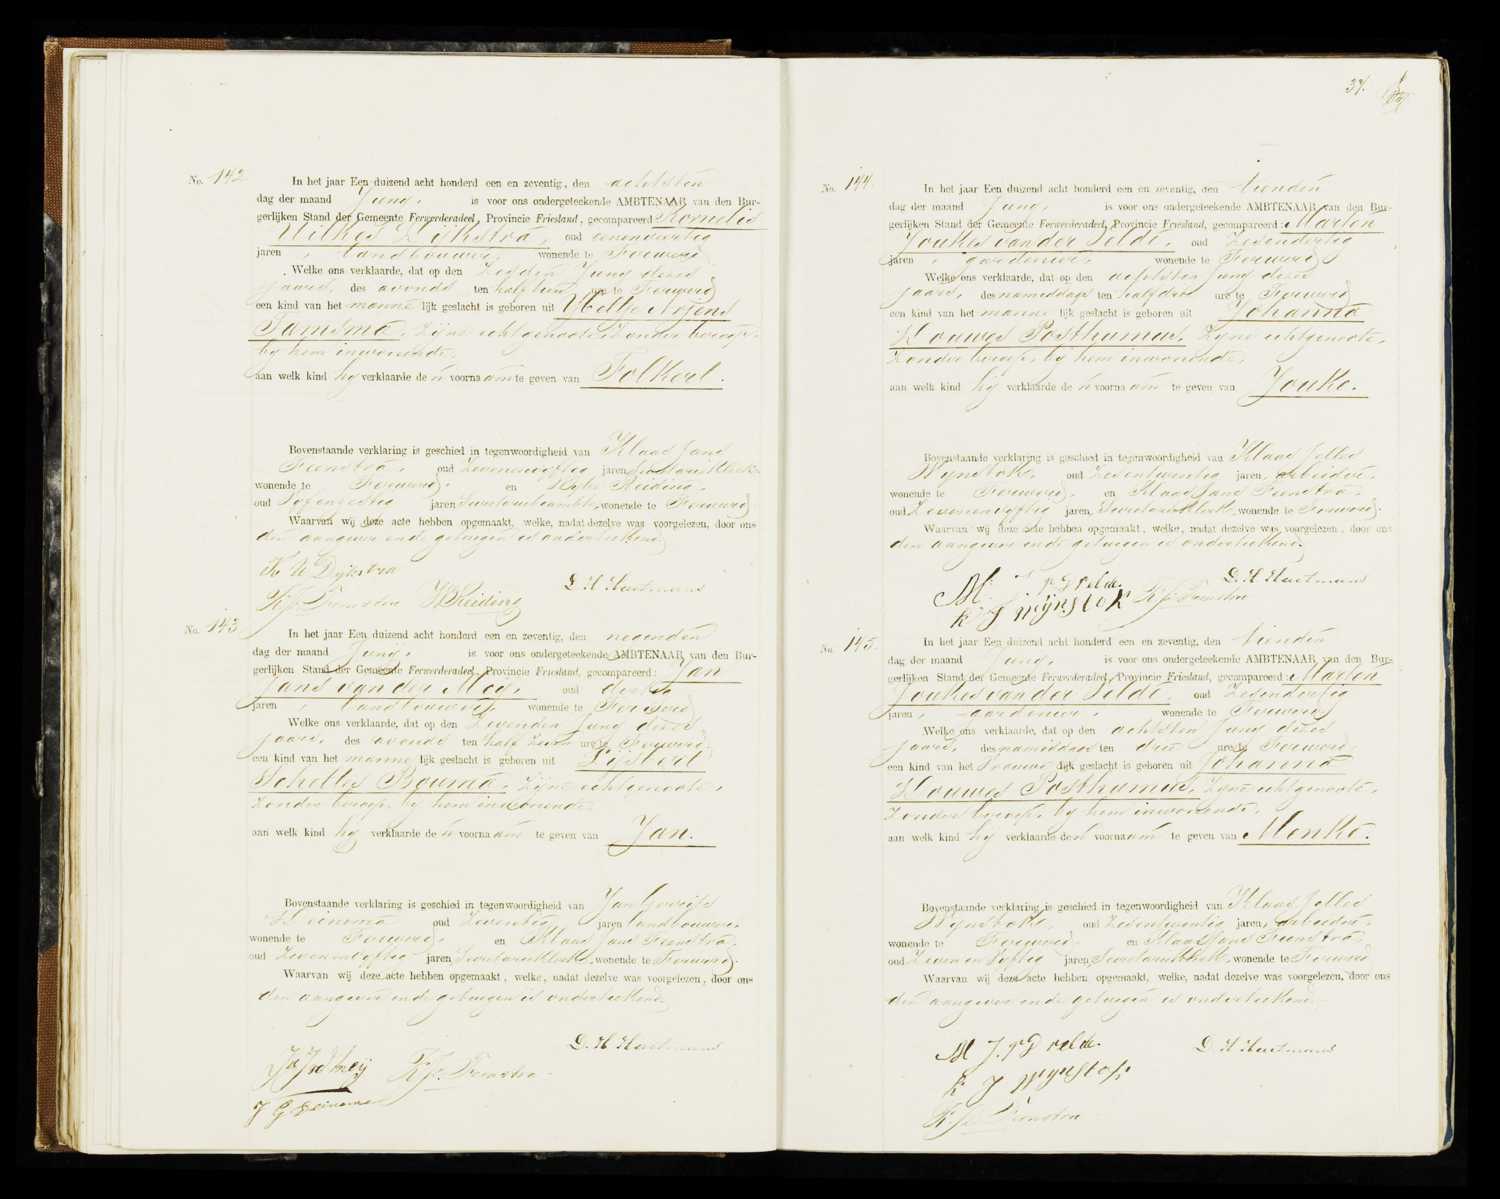 No. 142
In het jaar Een duizend acht honderd een en zeventig, den achtsten
dag der maand Junij, is voor ons ondergeteekende AMBTENAAR van den Bur-
gerlijken Stand der Gemeente Ferwerderadeel, Provincie Friesland, gecompareerd Kornelis
Wilkes Dijkstra, oud eenenveertig
jaren, landbouwer, wonende te Ferwerd
Welke ons verklaarde, dat op den zesden Junij dezes
jaars, des avonds ten half tien ure te Ferwerd
een kind van het manne lijk geslacht is geboren uit
Tamsma, zijne echtgenoote, zonder beroep,
bij hem inwonende,
aan welk kind hij verklaarde de n voorna am te geven van Folkert.
Bovenstaande verklaring is geschied in tegenwoordigheid van Klaas Jans
Feenstra, oud zevenenvijftig jaren, Secretarieklerk,
wonende te Ferwerd, en Reiding,
oud jaren, wonende te Ferwerd
Waarvan wij deze acte hebben opgemaakt, welke, nadat dezelve was voorgelezen, door ons
den aangever en de getuigen is onderteekend
K W Dijkstra
K. J. Feenstra W Reiding D. H. Hartmans
No. 143
In het jaar Een duizend acht honderd een en zeventig, den negenden
dag der maand Junij, is voor ons ondergeteekende AMBTENAAR van den Bur-
gerlijken Stand der Gemeente Ferwerderadeel, Provincie Friesland, gecompareerd: Jan
Jans van der Meij, oud dertig
jaren, landbouwer, wonende te Ferwerd
Welke ons verklaarde, dat op den zevenden Junij dezes
jaars, des avonds ten half zeven ure te Ferwerd
een kind van het manne lijk geslacht is geboren uit Lijsbert
Scheltes Bouma, zijne echtgenoote,
zonder beroep, bij hem inwonende,
aan welk kind hij verklaarde de n voorna am te geven van Jan.
Bovenstaande verklaring is geschied in tegenwoordigheid van Jan Gerrits
Heinema oud zeventig jaren, landbouwer,
wonende te Ferwerd, en Klaas Jans Feenstra,
oud zevenenvijftig jaren, Secretarieklerk, wonende te Ferwerd.
Waarvan wij deze acte hebben opgemaakt, welke, nadat dezelve was voorgelezen, door ons
den aangever en de getuigen is onderteekend
D. H. Hartmans
K. J. Feenstra
J G Heinema
37.
No. 144.
In het jaar Een duizend acht honderd een en zeventig, den tienden
dag der maand Junij, is voor ons ondergeteekende AMBTENAAR van den Bur-
gerlijken Stand der Gemeente Ferwerderadeel, Provincie Friesland, gecompareerd: Marten
Joukes van der Velde, oud zesendertig
jaren, gardenier, wonende te Ferwerd
Welke ons verklaarde, dat op den achtsten Junij dezes
jaars, des namiddags ten half drie ure te Ferwerd
een kind van het manne lijk geslacht is geboren uit Johanna
Douwes Posthumus, zijne echtgenoote,
zonder beroep, bij hem inwonende,
aan welk kind hij verklaarde de n voorna am te geven van Jouke.
Bovenstaande verklaring is geschied in tegenwoordigheid van Klaas Jelles
Wijnstok, oud zesentwintig jaren, arbeider,
wonende te Ferwerd, en Klaas Jans Feenstra,
oud zevenenvijftig jaren, Secretarieklerk, wonende te Ferwerd.
Waarvan wij deze acte hebben opgemaakt, welke, nadat dezelve was voorgelezen, door ons
den aangever en de getuigen is onderteekend.
D. H. Hartmans
K J Wijnstok K. J. Feenstra
No. 145.
In het jaar Een duizend acht honderd een en zeventig, den tienden
dag der maand Junij, is voor ons ondergeteekende AMBTENAAR van den Bur-
gerlijken Stand der Gemeente Ferwerderadeel, Provincie Friesland, gecompareerd: Marten
Joukes van der Velde, oud zesendertig
jaren, gardenier, wonende te Ferwerd
Welke ons verklaarde, dat op den achtsten Junij dezes
jaars, des namiddags ten drie ure te Ferwerd
een kind van het vrouwe lijk geslacht is geboren uit Johanna
Douwes Posthumus, zijne echtgenoote,
zonder beroep, bij hem inwonende,
aan welk kind hij verklaarde de n voorna am te geven van Menke.
Bovenstaande verklaring is geschied in tegenwoordigheid van Klaas Jelles
Wijnstok, oud zesentwintig jaren, arbeider,
wonende te Ferwerd, en Klaas Jans Feenstra,
oud zevenenvijftig jaren, Secretarieklerk, wonende te Ferwerd
Waarvan wij deze acte hebben opgemaakt, welke, nadat dezelve was voorgelezen, door ons
den aangever en de getuigen is onderteekend.
M J. v D velde. D. H. Hartmans
K J Wijnstok
K. J. Feenstra